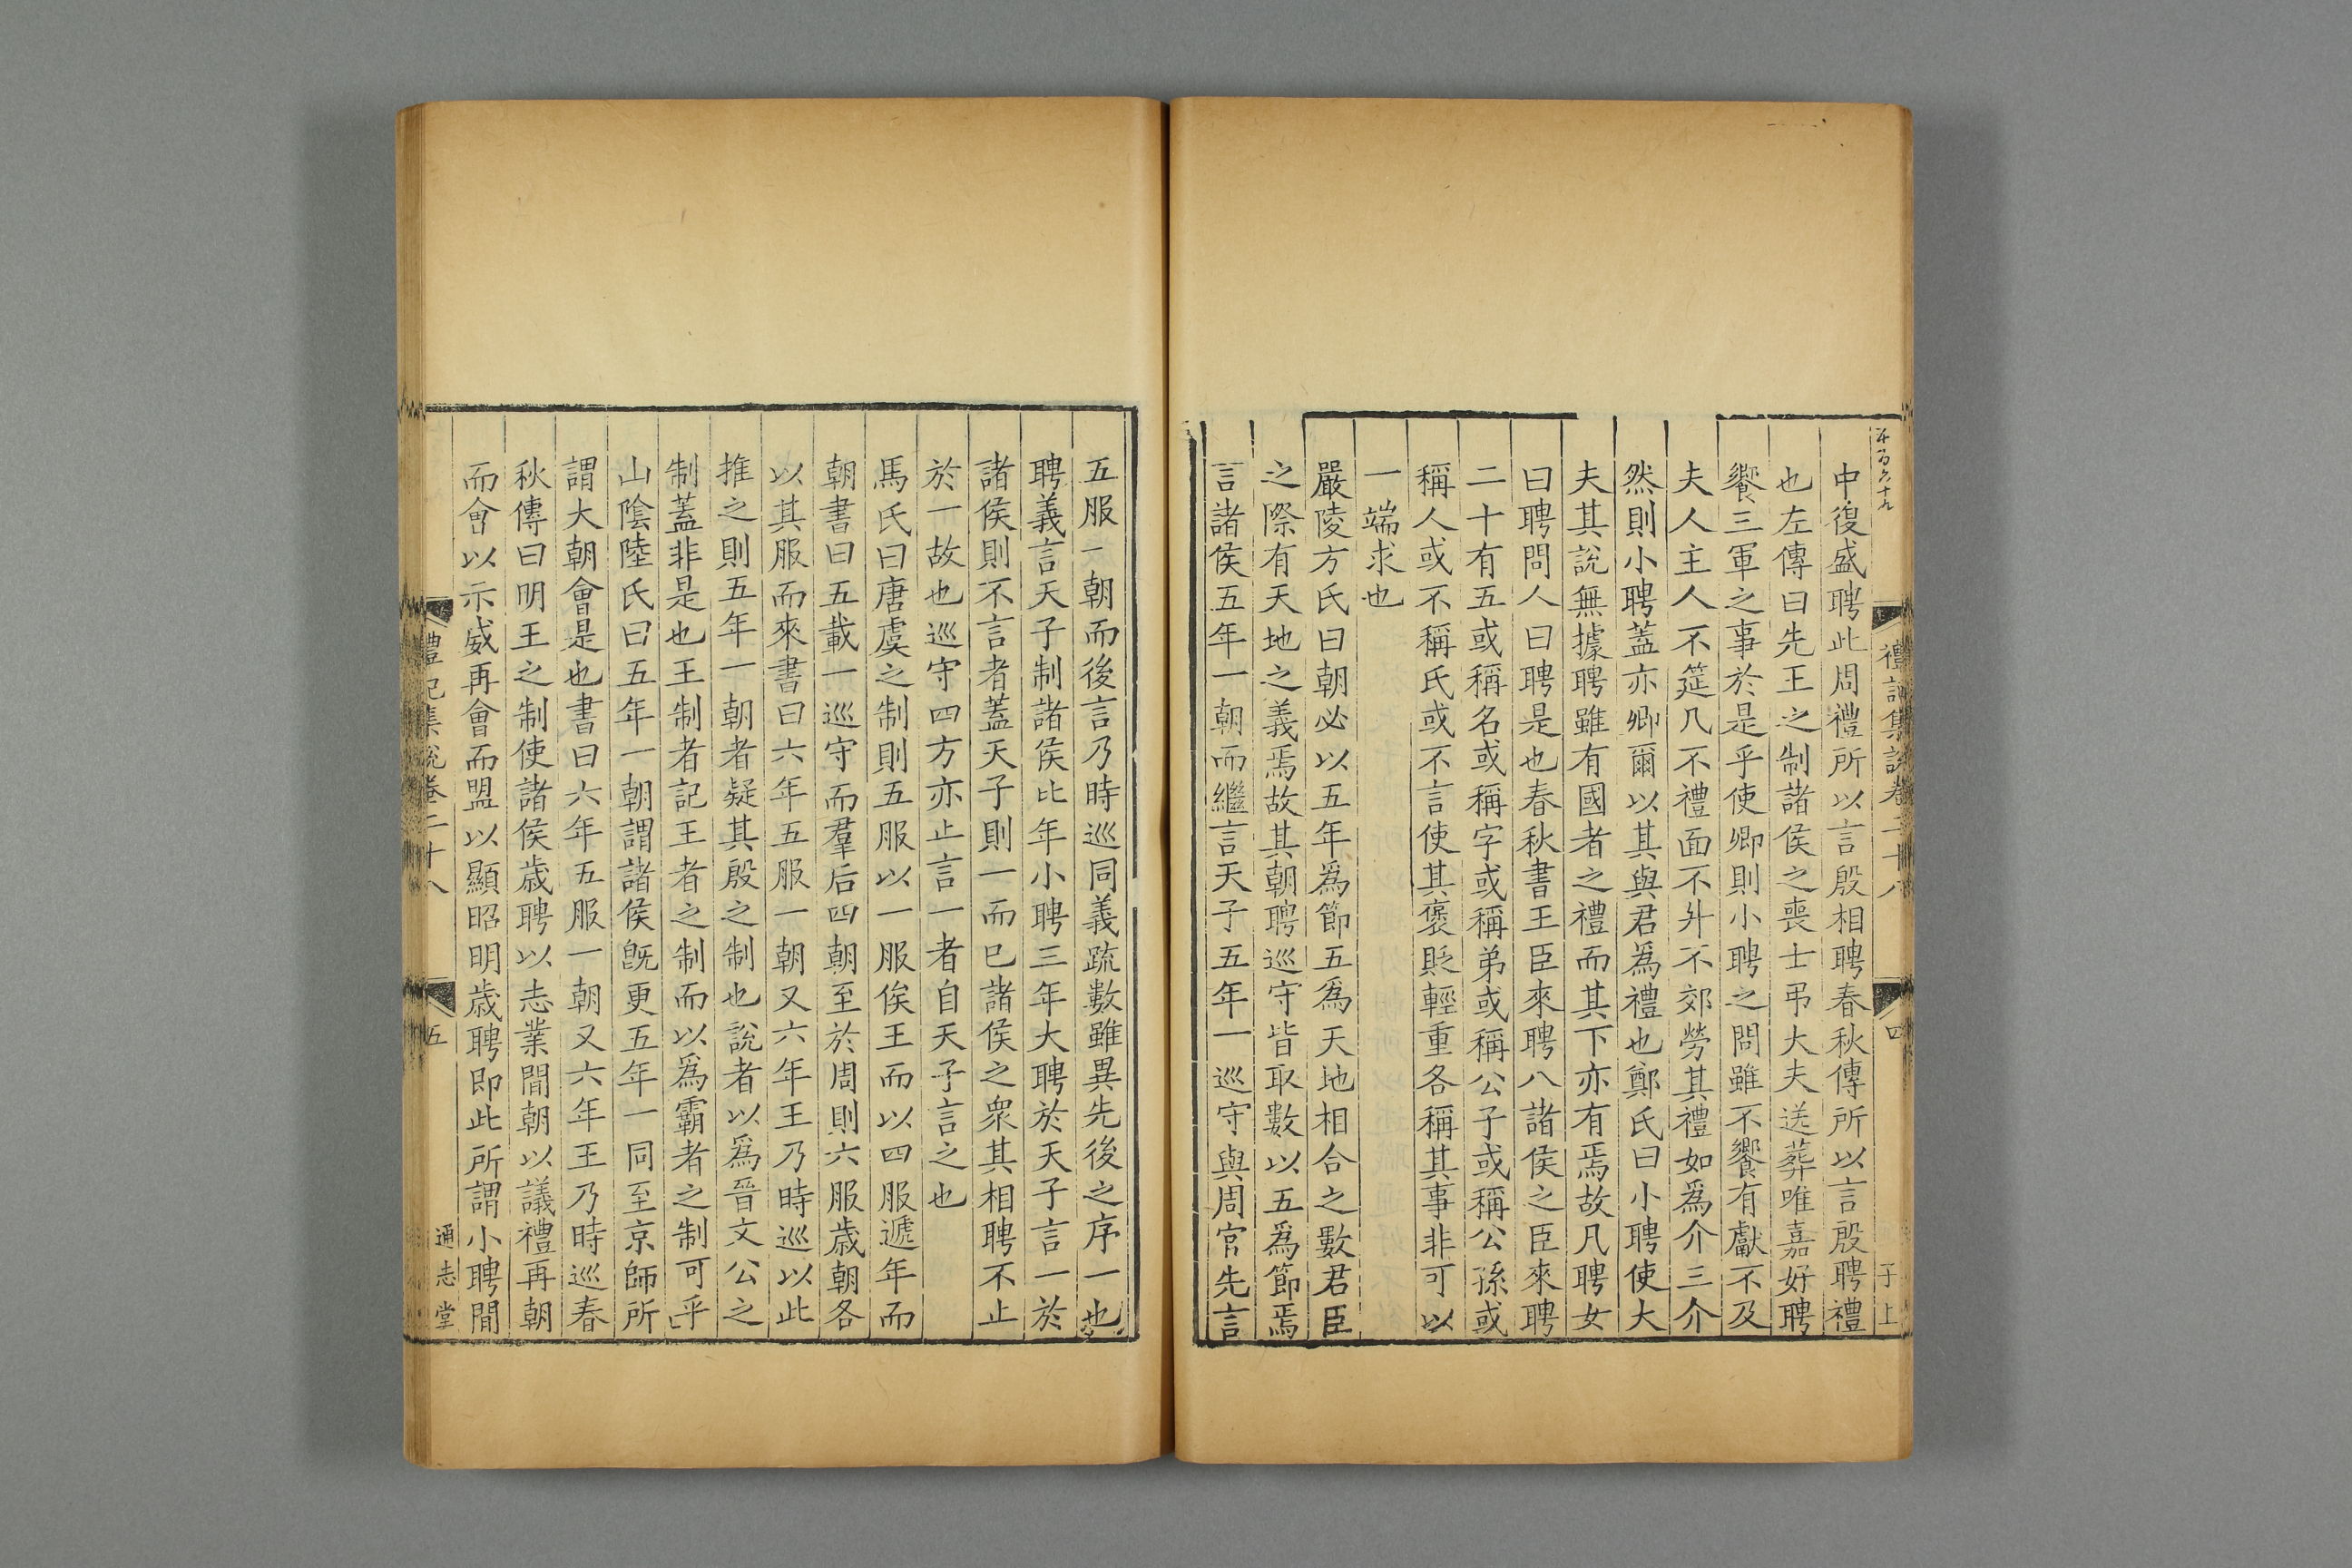 禮記集說卷二十八
四
子上
中復盛聘此周禮所以言殷相聘春秋傳所以言殷聘禮
也左傳曰先王之制諸侯之喪士弔大夫送葬唯嘉好聘
饗三軍之事於是乎使卿則小聘之問雖不饗有獻不及
夫人主人不筵几不禮面不升不郊勞其禮如爲介三介
然則小聘蓋亦卿爾以其與君爲禮也鄭氏曰小聘使大
夫其說無據聘雖有國者之禮而其下亦有焉故凡聘女
曰聘問人曰聘是也春秋書王臣來聘八諸侯之臣來聘
二十有五或稱名或稱字或稱弟或稱公子或稱公孫或
稱人或不稱氏或不言使其褒貶輕重各稱其事非可以
一端求也
嚴陵方氏曰朝必以五年爲節五爲天地相合之數君臣
之際有天地之義焉故其朝聘巡守皆取數以五爲節焉
言諸侯五年一朝而繼言天子五年一巡守與周官先言
五服一朝而後言乃時巡同義疏數雖異先後之序一也
聘義言天子制諸侯比年小聘三年大聘於天子言一於
諸侯則不言者蓋天子則一而已諸侯之衆其相聘不止
於一故也巡守四方亦止言一者自天子言之也
馬氏曰唐虞之制則五服以一服俟王而以四服遞年而
朝書曰五載一巡守而羣后四朝至於周則六服歲朝各
以其服而來書曰六年五服一朝又六年王乃時巡以此
推之則五年一朝者疑其殷之制也說者以爲晉文公之
制蓋非是也王制者記王者之制而以爲霸者之制可乎
山陰陸氏曰五年一朝謂諸侯旣更五年一同至京師所
謂大朝會是也書曰六年五服一朝又六年王乃時巡春
秋傳曰明王之制使諸侯歲聘以志業間朝以議禮再朝
而會以示威再會而盟以顯昭明歲聘即此所謂小聘間
禮記集說卷二十八
五
通志堂